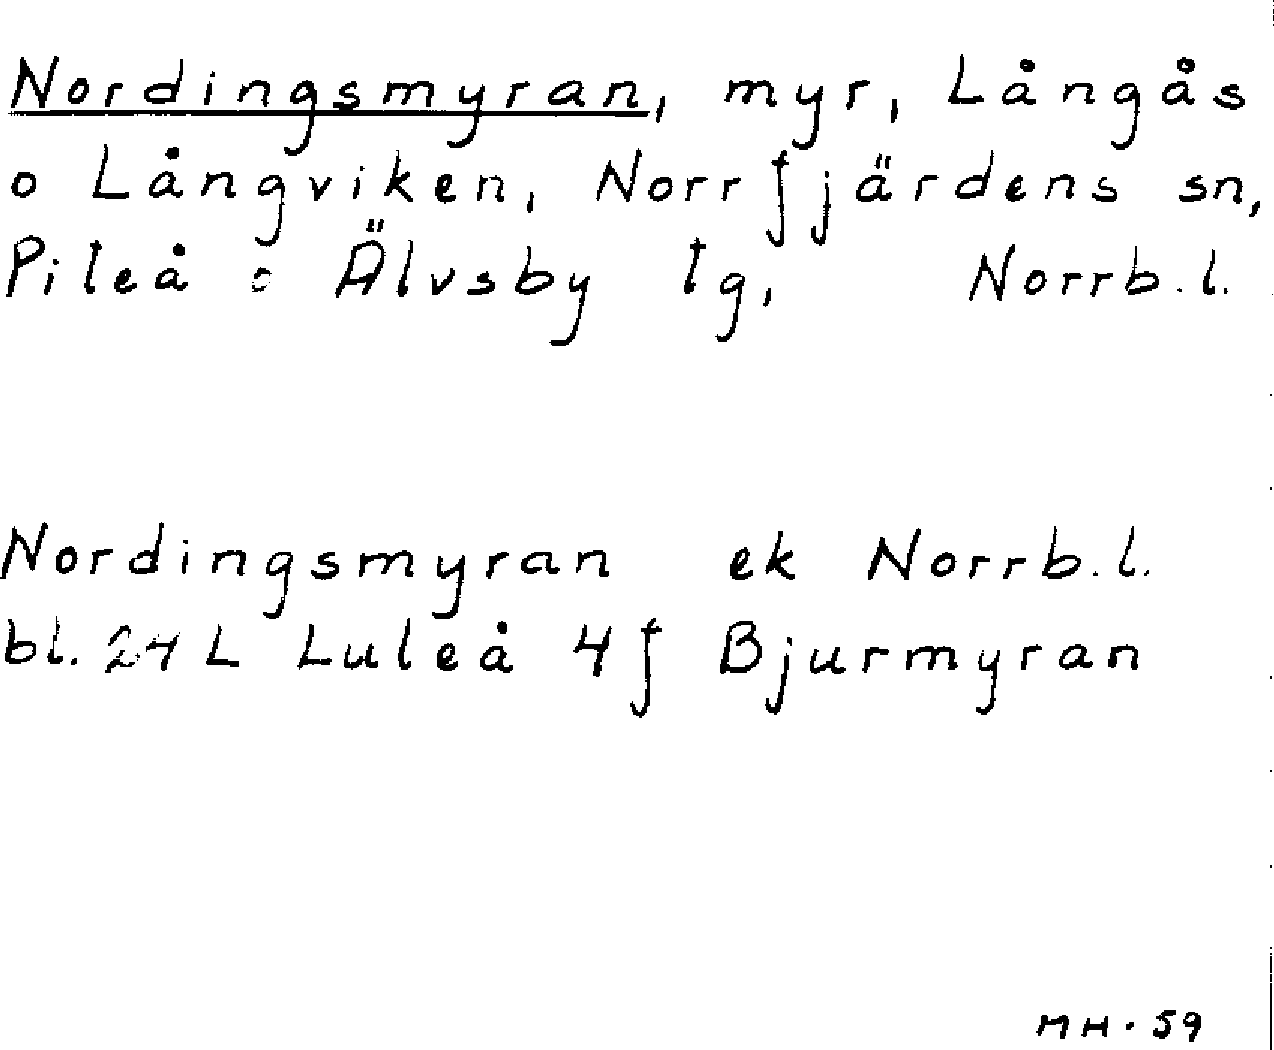 Nordingsmyran, myr, Långås
o Långviken, Norrfjärdens sn,
Piteå o Älvsby tg, Norrb.l.
Nordingsmyran ek Norrb.l.
bl. 24 L Luleå 4f Bjurmyran
MH. 59